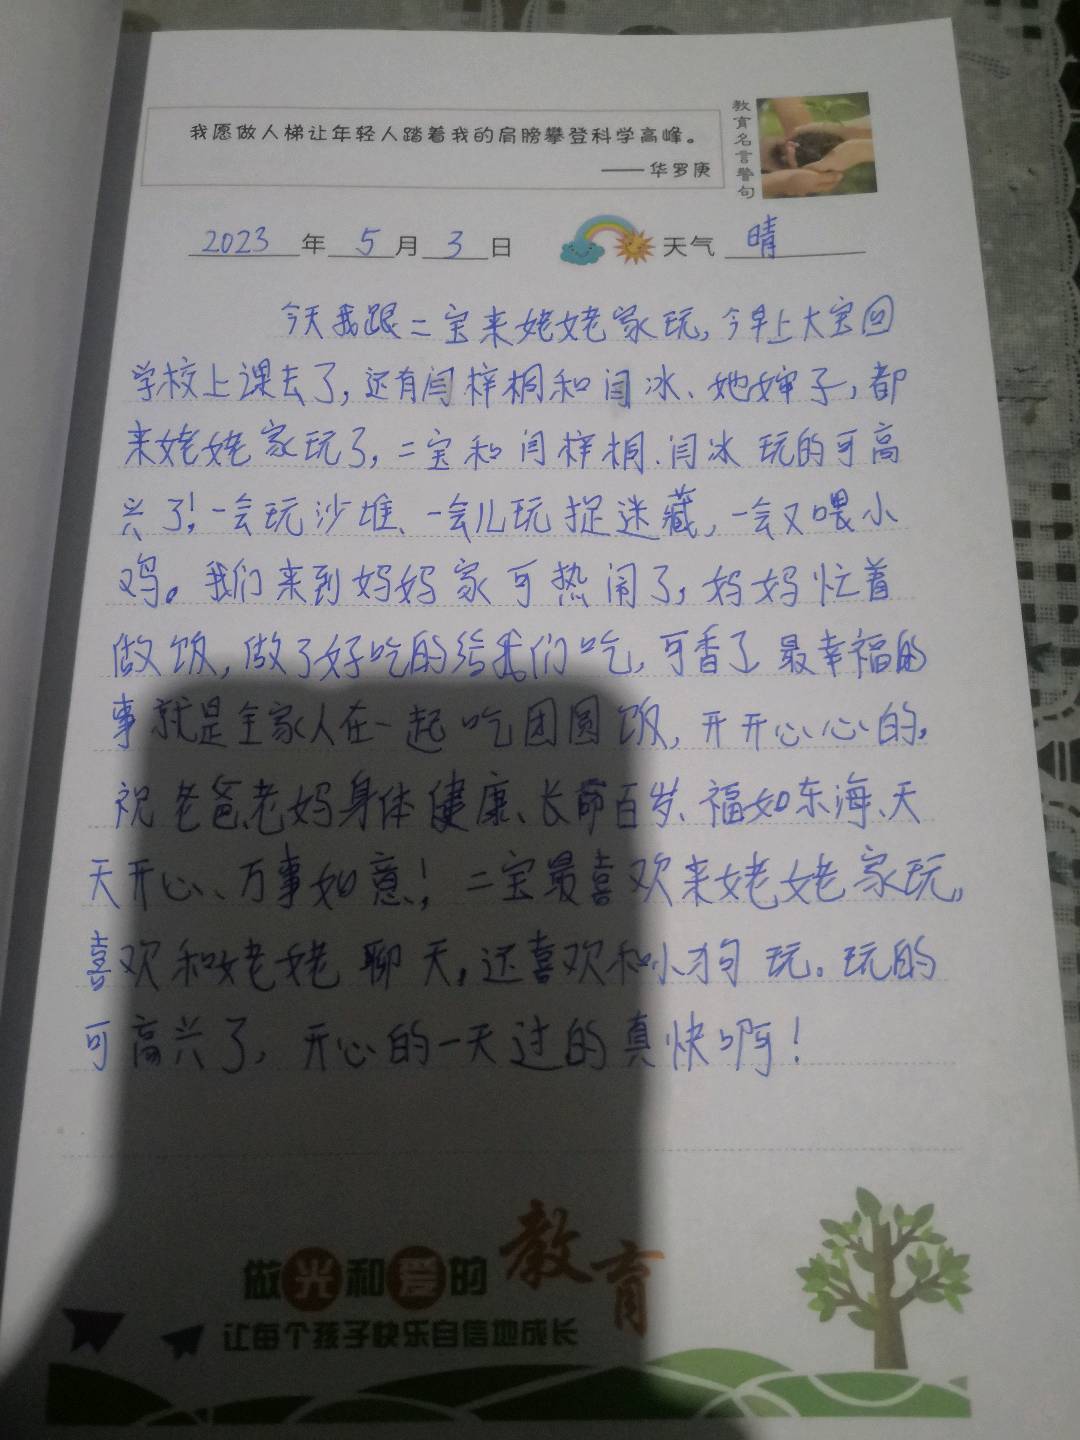 我愿做人梯让年轻人踏着我的肩膀攀登科学高峰。
——华罗庚
教育名言警句
2023年5月3日 天气 晴
今天我跟二宝来姥姥家玩,今早上大宝回
学校上课去了,还有闫梓桐和闫冰、她婶子,都
来姥姥家玩了,二宝和闫梓桐、闫冰玩的可高
兴了!一会玩沙堆、一会儿玩捉迷藏,一会又喂小
鸡。我们来到妈妈家可热闹了,妈妈忙着
做饭,做了好吃的给我们吃,可香了 最幸福的
事就是全家人在一起吃团圆饭,开开心心的。
祝老爸老妈身体健康、长命百岁、福如东海、天
天开心、万事如意!二宝最喜欢来姥姥家玩,
喜欢和姥姥聊天,还喜欢和小狗玩。玩的
可高兴了,开心的一天过的真快啊!
做光和爱的教育
让每个孩子快乐自信地成长